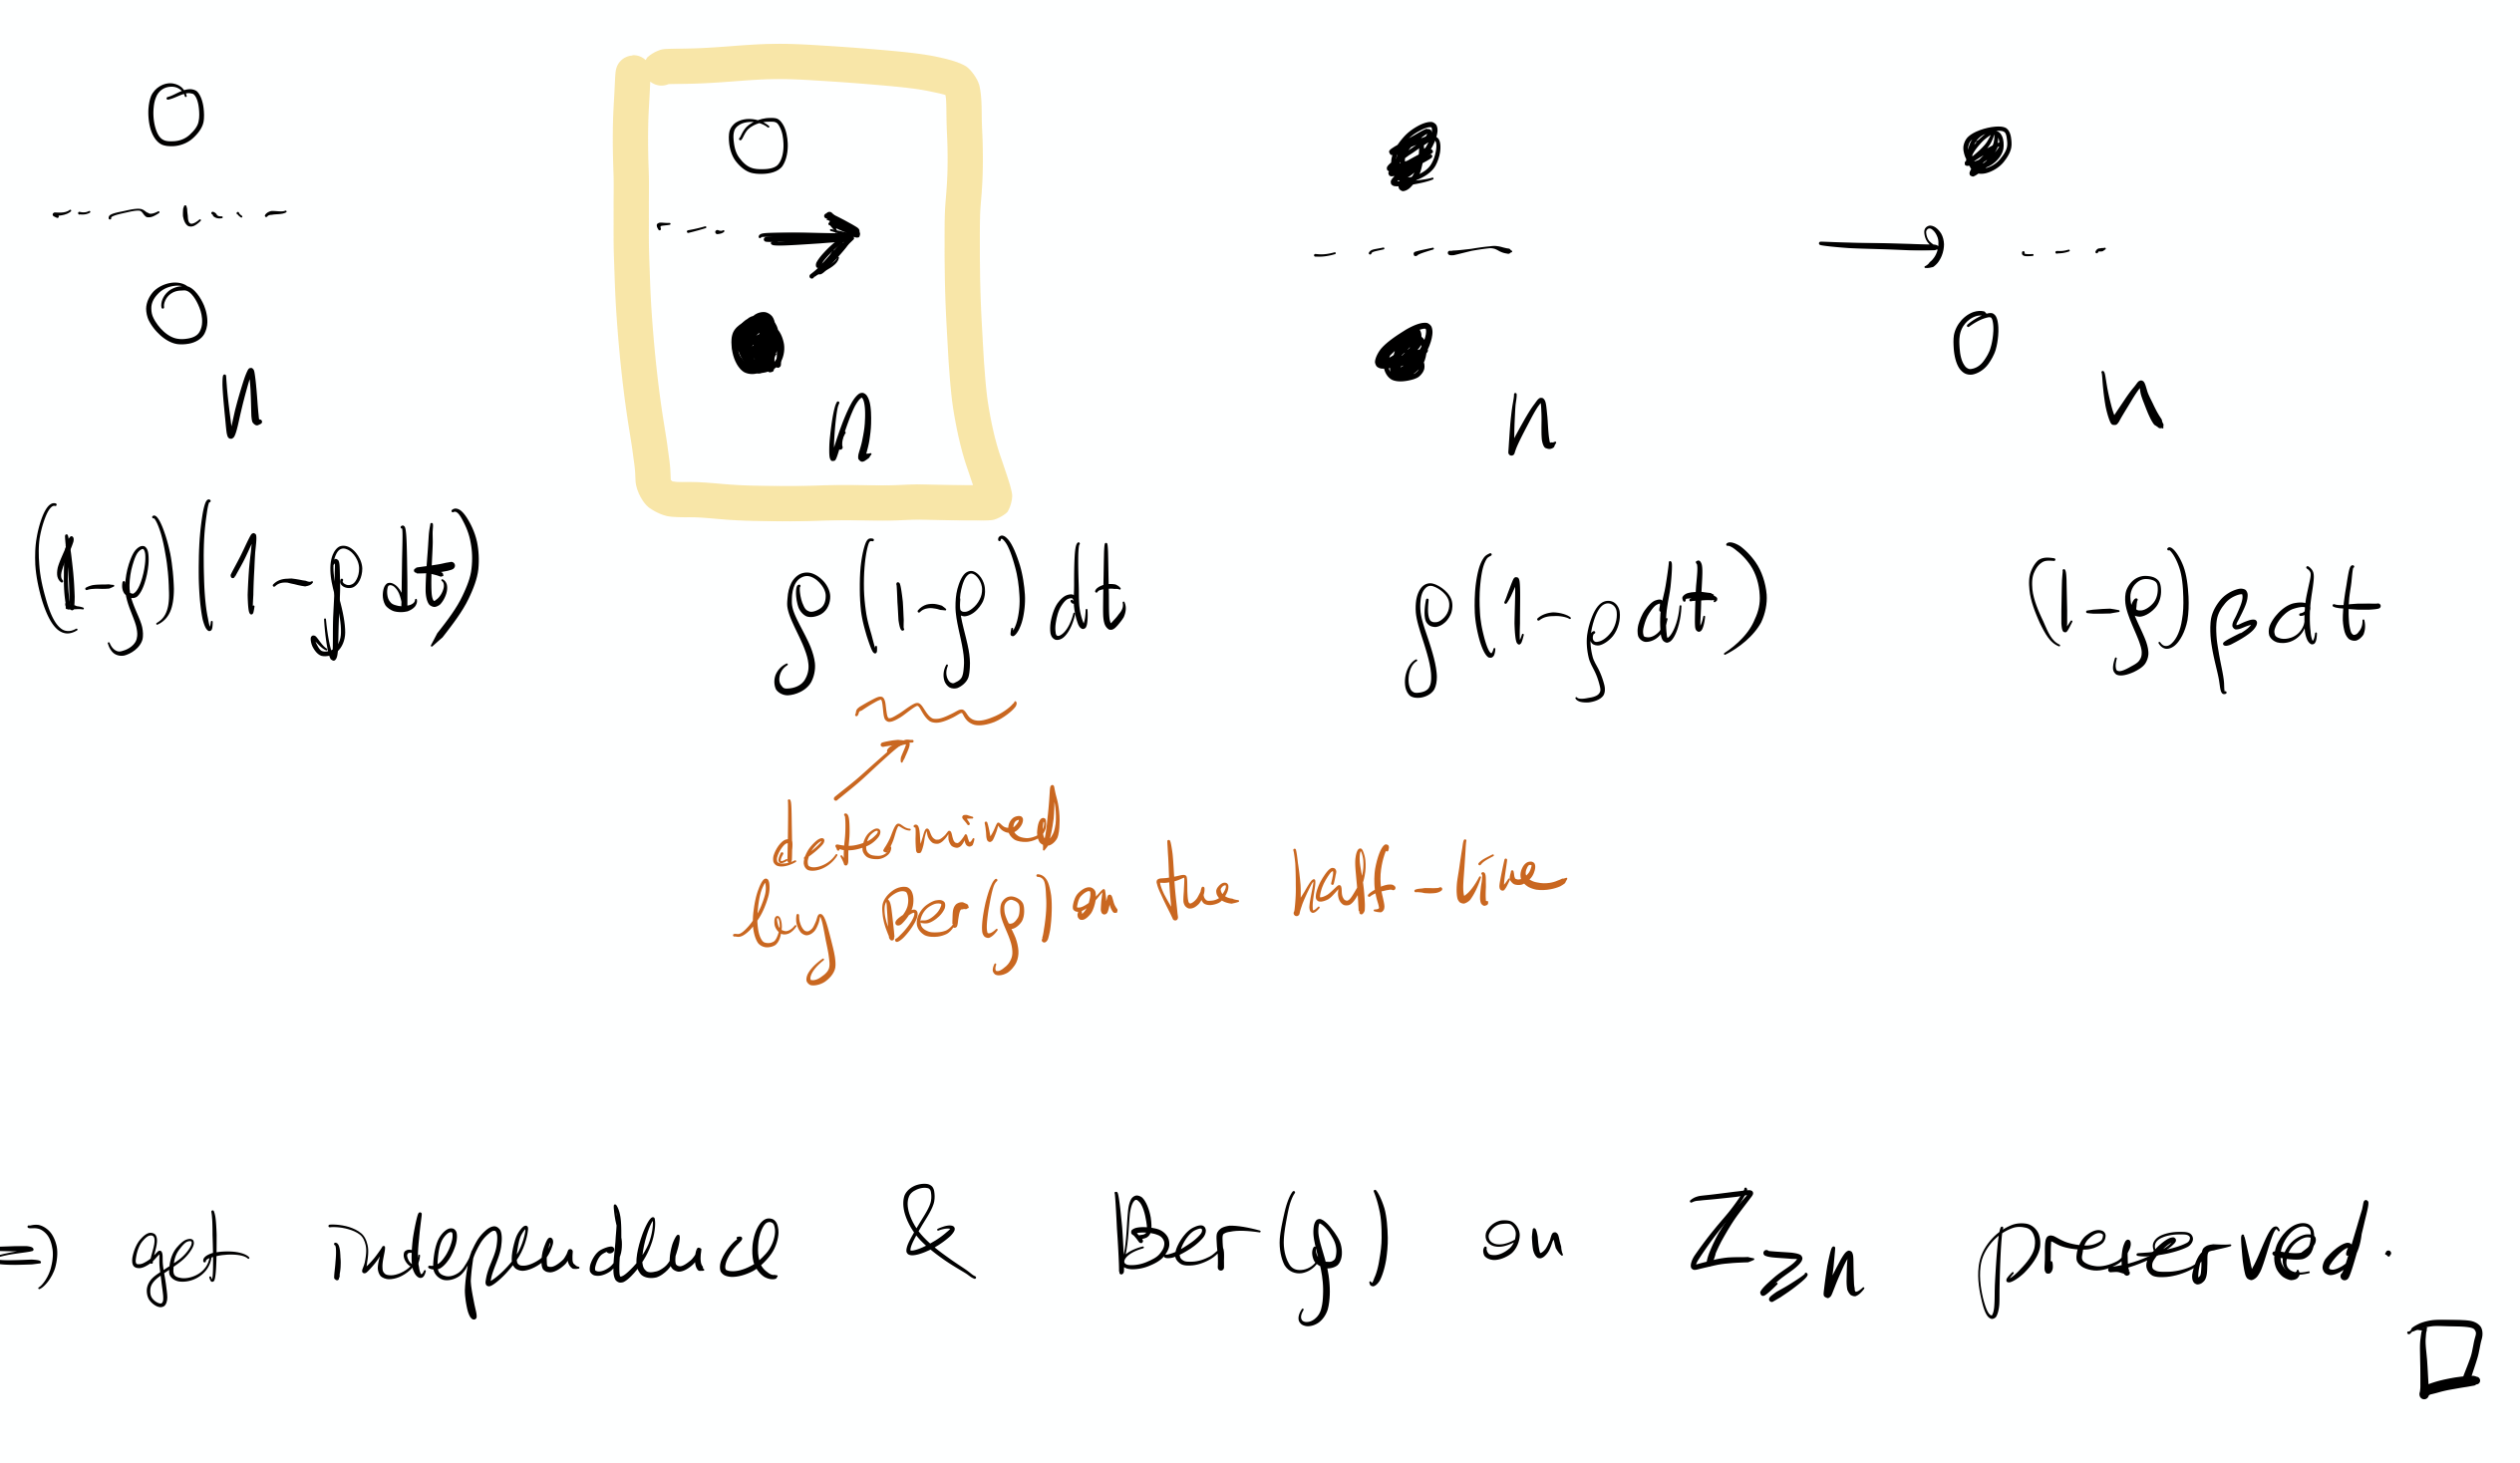 n n n n
(1-ρ)(1-ρdt) ρ(1-ρ)dt ρ(1-ρdt) (1-ρ)ρdt
determined
by Ber(ρ) on the half-line
⇒ get independence & Ber(ρ) on Z≥n preserved.
□